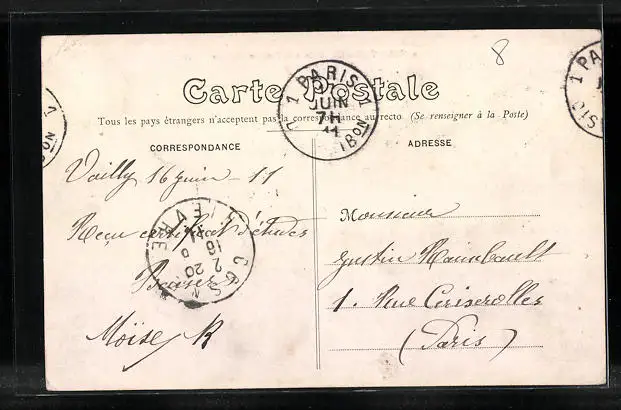 8
Carte Postale
Tous les pays étrangers n'acceptent pas la correspondance au recto (Se renseigner à la Poste)
CORRESPONDANCE
ADRESSE
1 PARIS 1
JUIN
11
1 PA
Vailly 16 juin 11
Reçu certificat d'études
Baisers
Moïse R
Monsieur
Justin Raimbault
1. Rue Criserolles
(Paris)